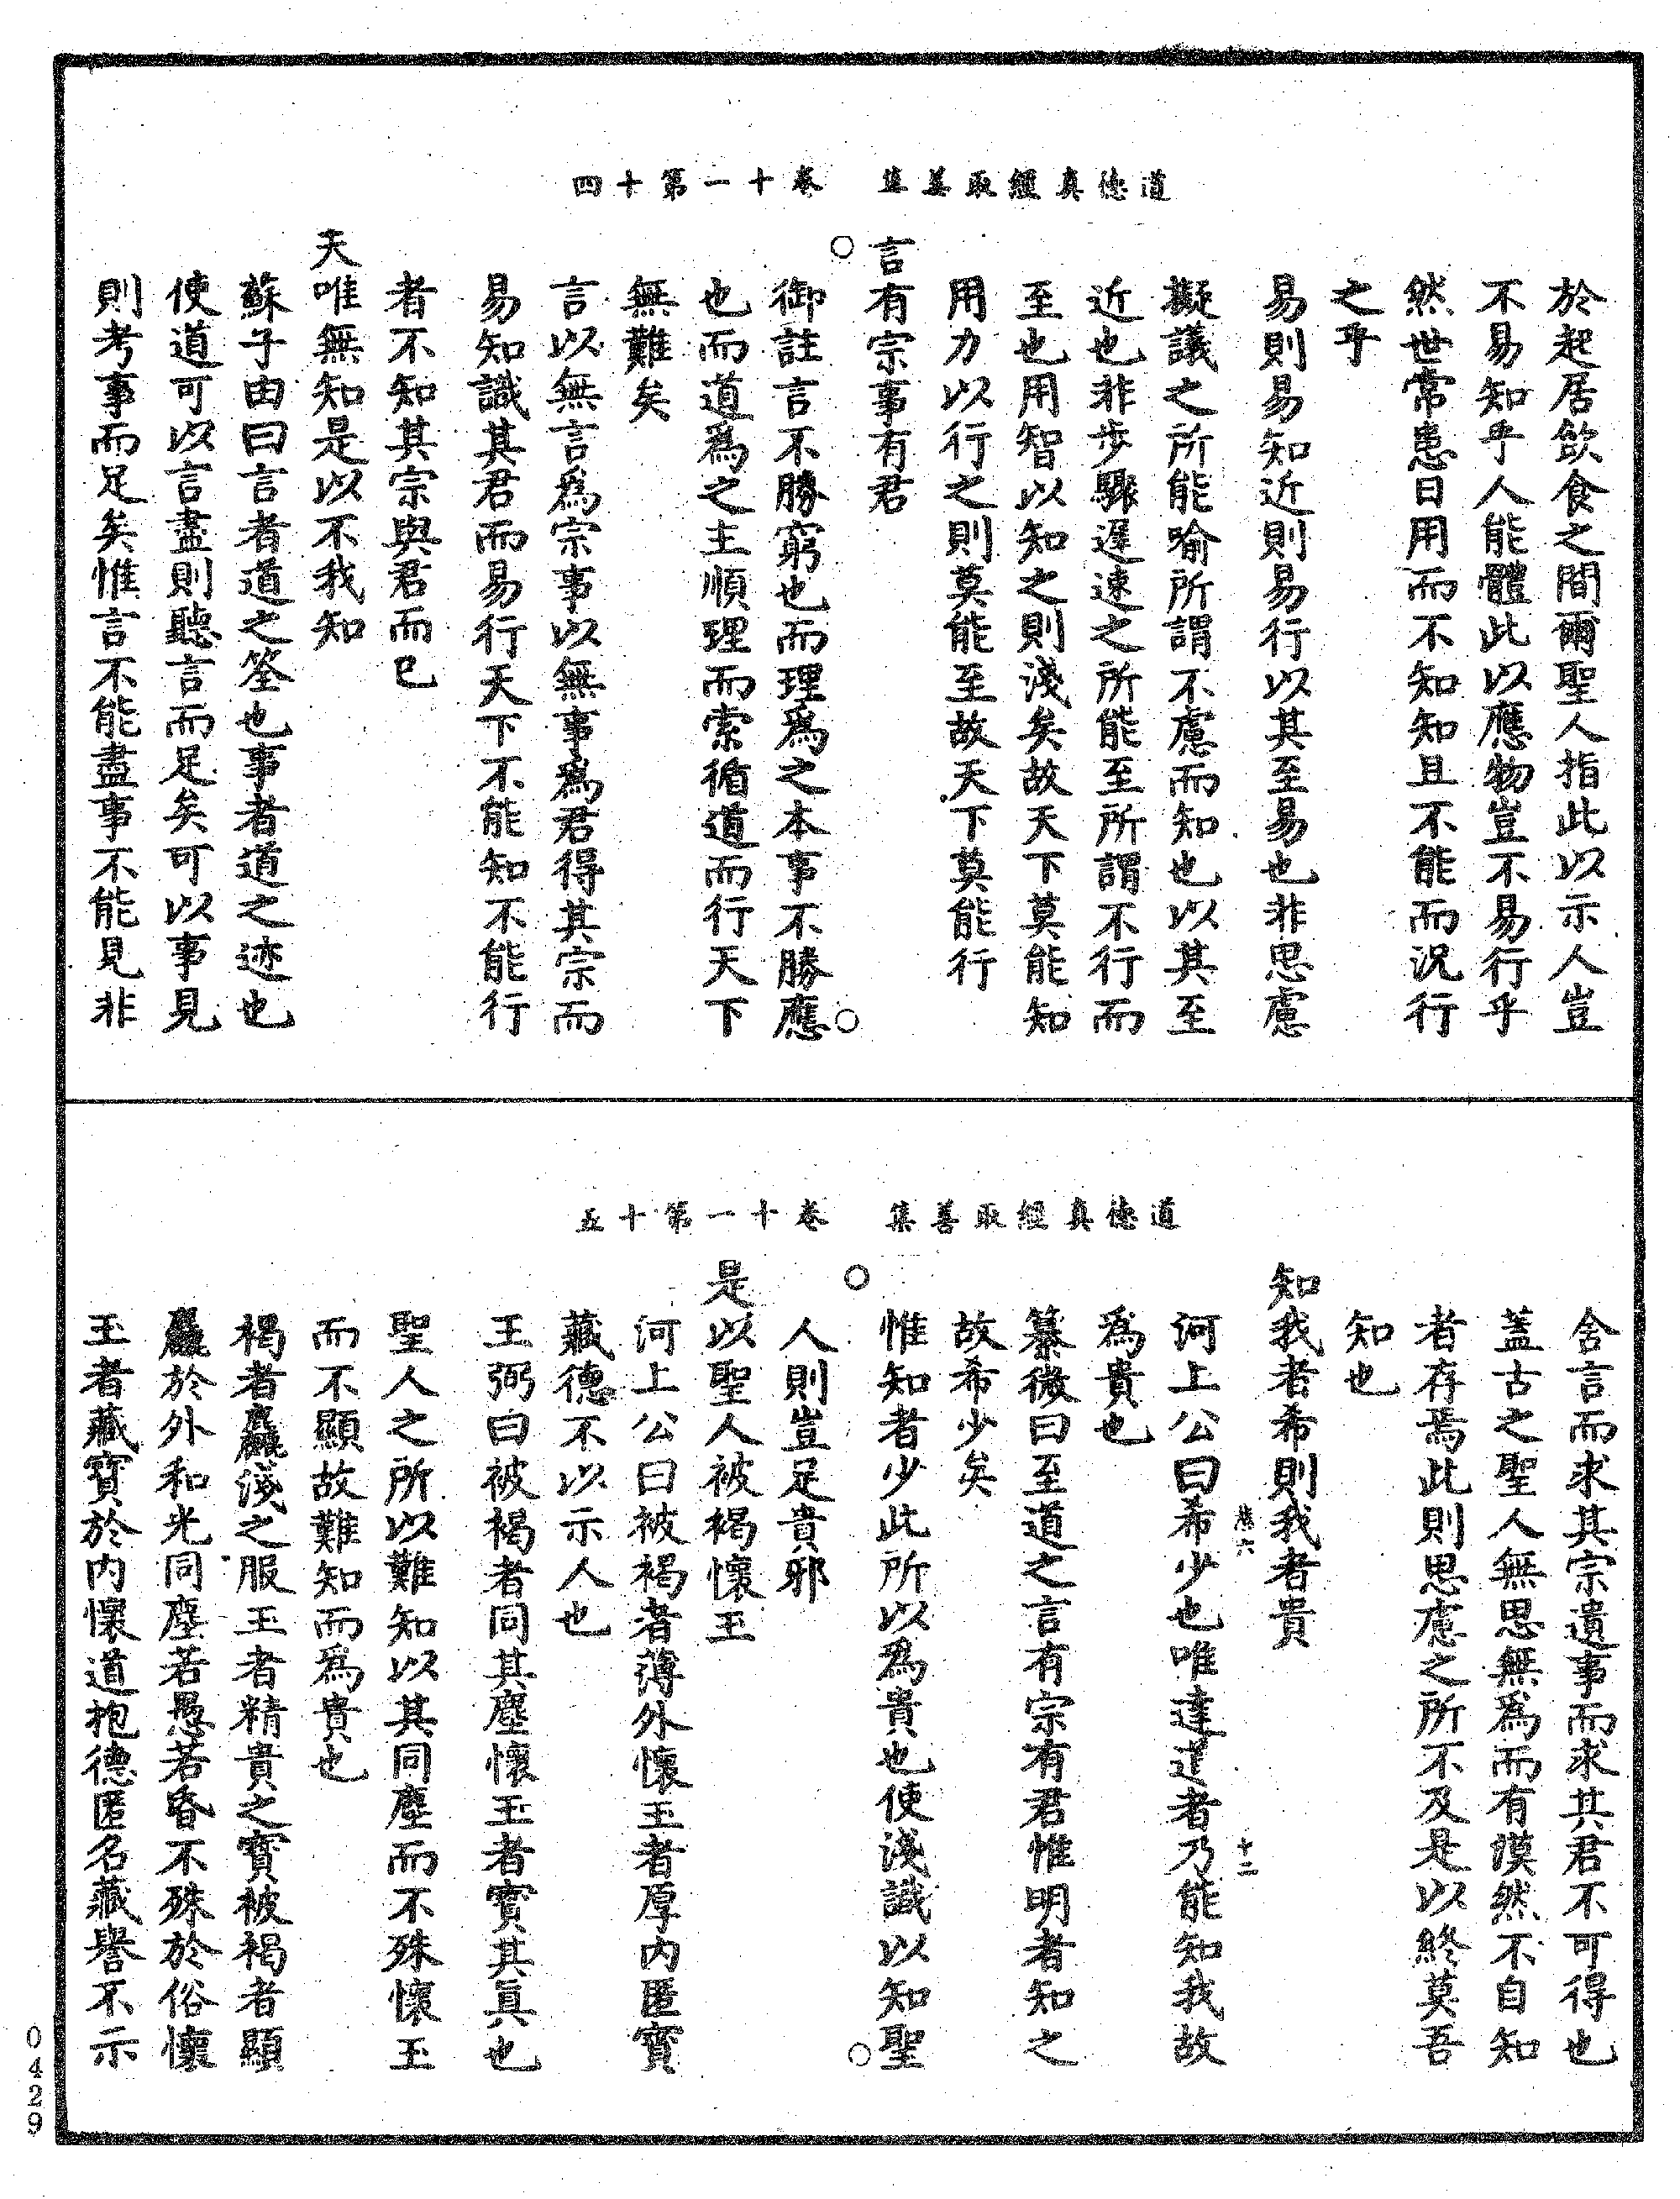 道德真經取善集　卷十一第十四
於起居飲食之間爾聖人指此以示人豈
不易知乎人能體此以應物豈不易行乎
然世常患日用而不知知且不能而況行
之乎
易則易知近則易行以其至易也非思慮
擬議之所能喻所謂不慮而知也以其至
近也非步驟遲速之所能至所謂不行而
至也用智以知之則淺矣故天下莫能知
用力以行之則莫能至故天下莫能行
言有宗事有君
御註言不勝窮也而理爲之本事不勝應
也而道爲之主順理而索循道而行天下
無難矣
言以無言爲宗事以無事爲君得其宗而
易知識其君而易行天下不能知不能行
者不知其宗與君而已
夫唯無知是以不我知
蘇子由曰言者道之筌也事者道之迹也
使道可以言盡則聽言而足矣可以事見
則考事而足矣惟言不能盡事不能見非
道德真經取善集　卷十一第十五
舍言而求其宗遺事而求其君不可得也
蓋古之聖人無思無爲而有漠然不自知
者存焉此則思慮之所不及是以終莫吾
知也
知我者希則我者貴
河上公曰希少也唯達道者乃能知我故
爲貴也
纂微曰至道之言有宗有君惟明者知之
故希少矣
惟知者少此所以爲貴也使淺識以知聖
人則豈足貴邪
是以聖人被褐懷玉
河上公曰被褐者薄外懷玉者厚内匿寶
藏德不以示人也
王弼曰被褐者同其塵懷玉者寶其眞也
聖人之所以難知以其同塵而不殊懷玉
而不顯故難知而爲貴也
褐者麤淺之服玉者精貴之寶被褐者顯
麤於外和光同塵若愚若昏不殊於俗懷
玉者藏寶於内懷道抱德匿名藏譽不示
十二
0429